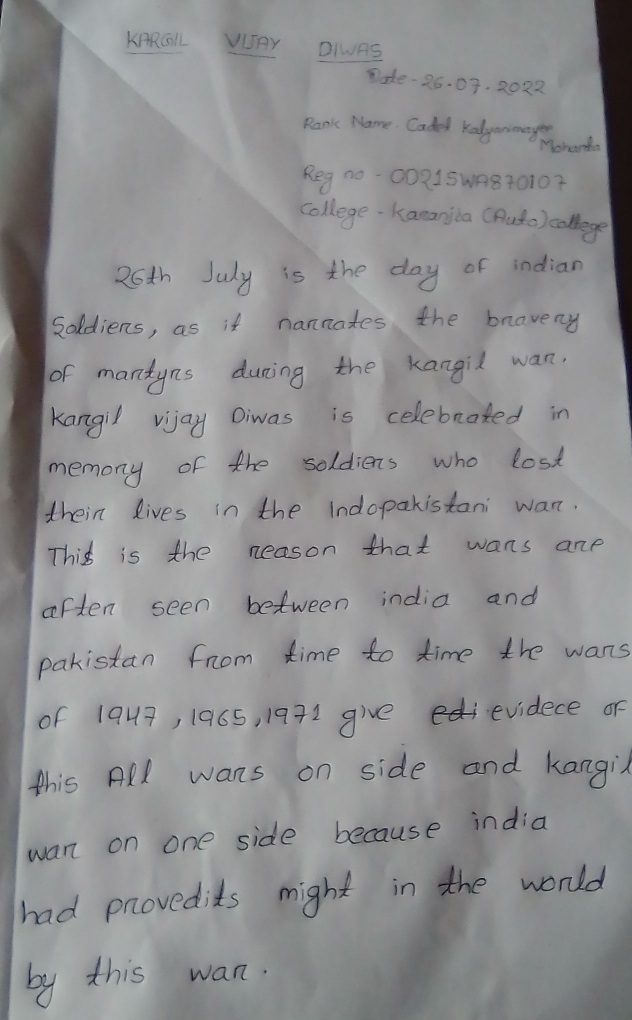 KARGIL VIJAY DIWAS
Date - 26.07.2022
Rank Name. Cadet Kalyanmayee
Mohanta
Reg no - OD21SWA870107
College - Karanjia (Auto) college
26th July is the day of indian
Soldiers, as it narrates the bravery
of martyrs during the kargil war.
kargil vijay Diwas is celebrated in
memory of the soldiers who lost
their lives in the Indopakistani war.
This is the reason that wars are
after seen between india and
pakistan from time to time the wars
of 1947, 1965, 1971 give edi evidece of
this All wars on side and kargil
war on one side because india
had provedits might in the world
by this war.